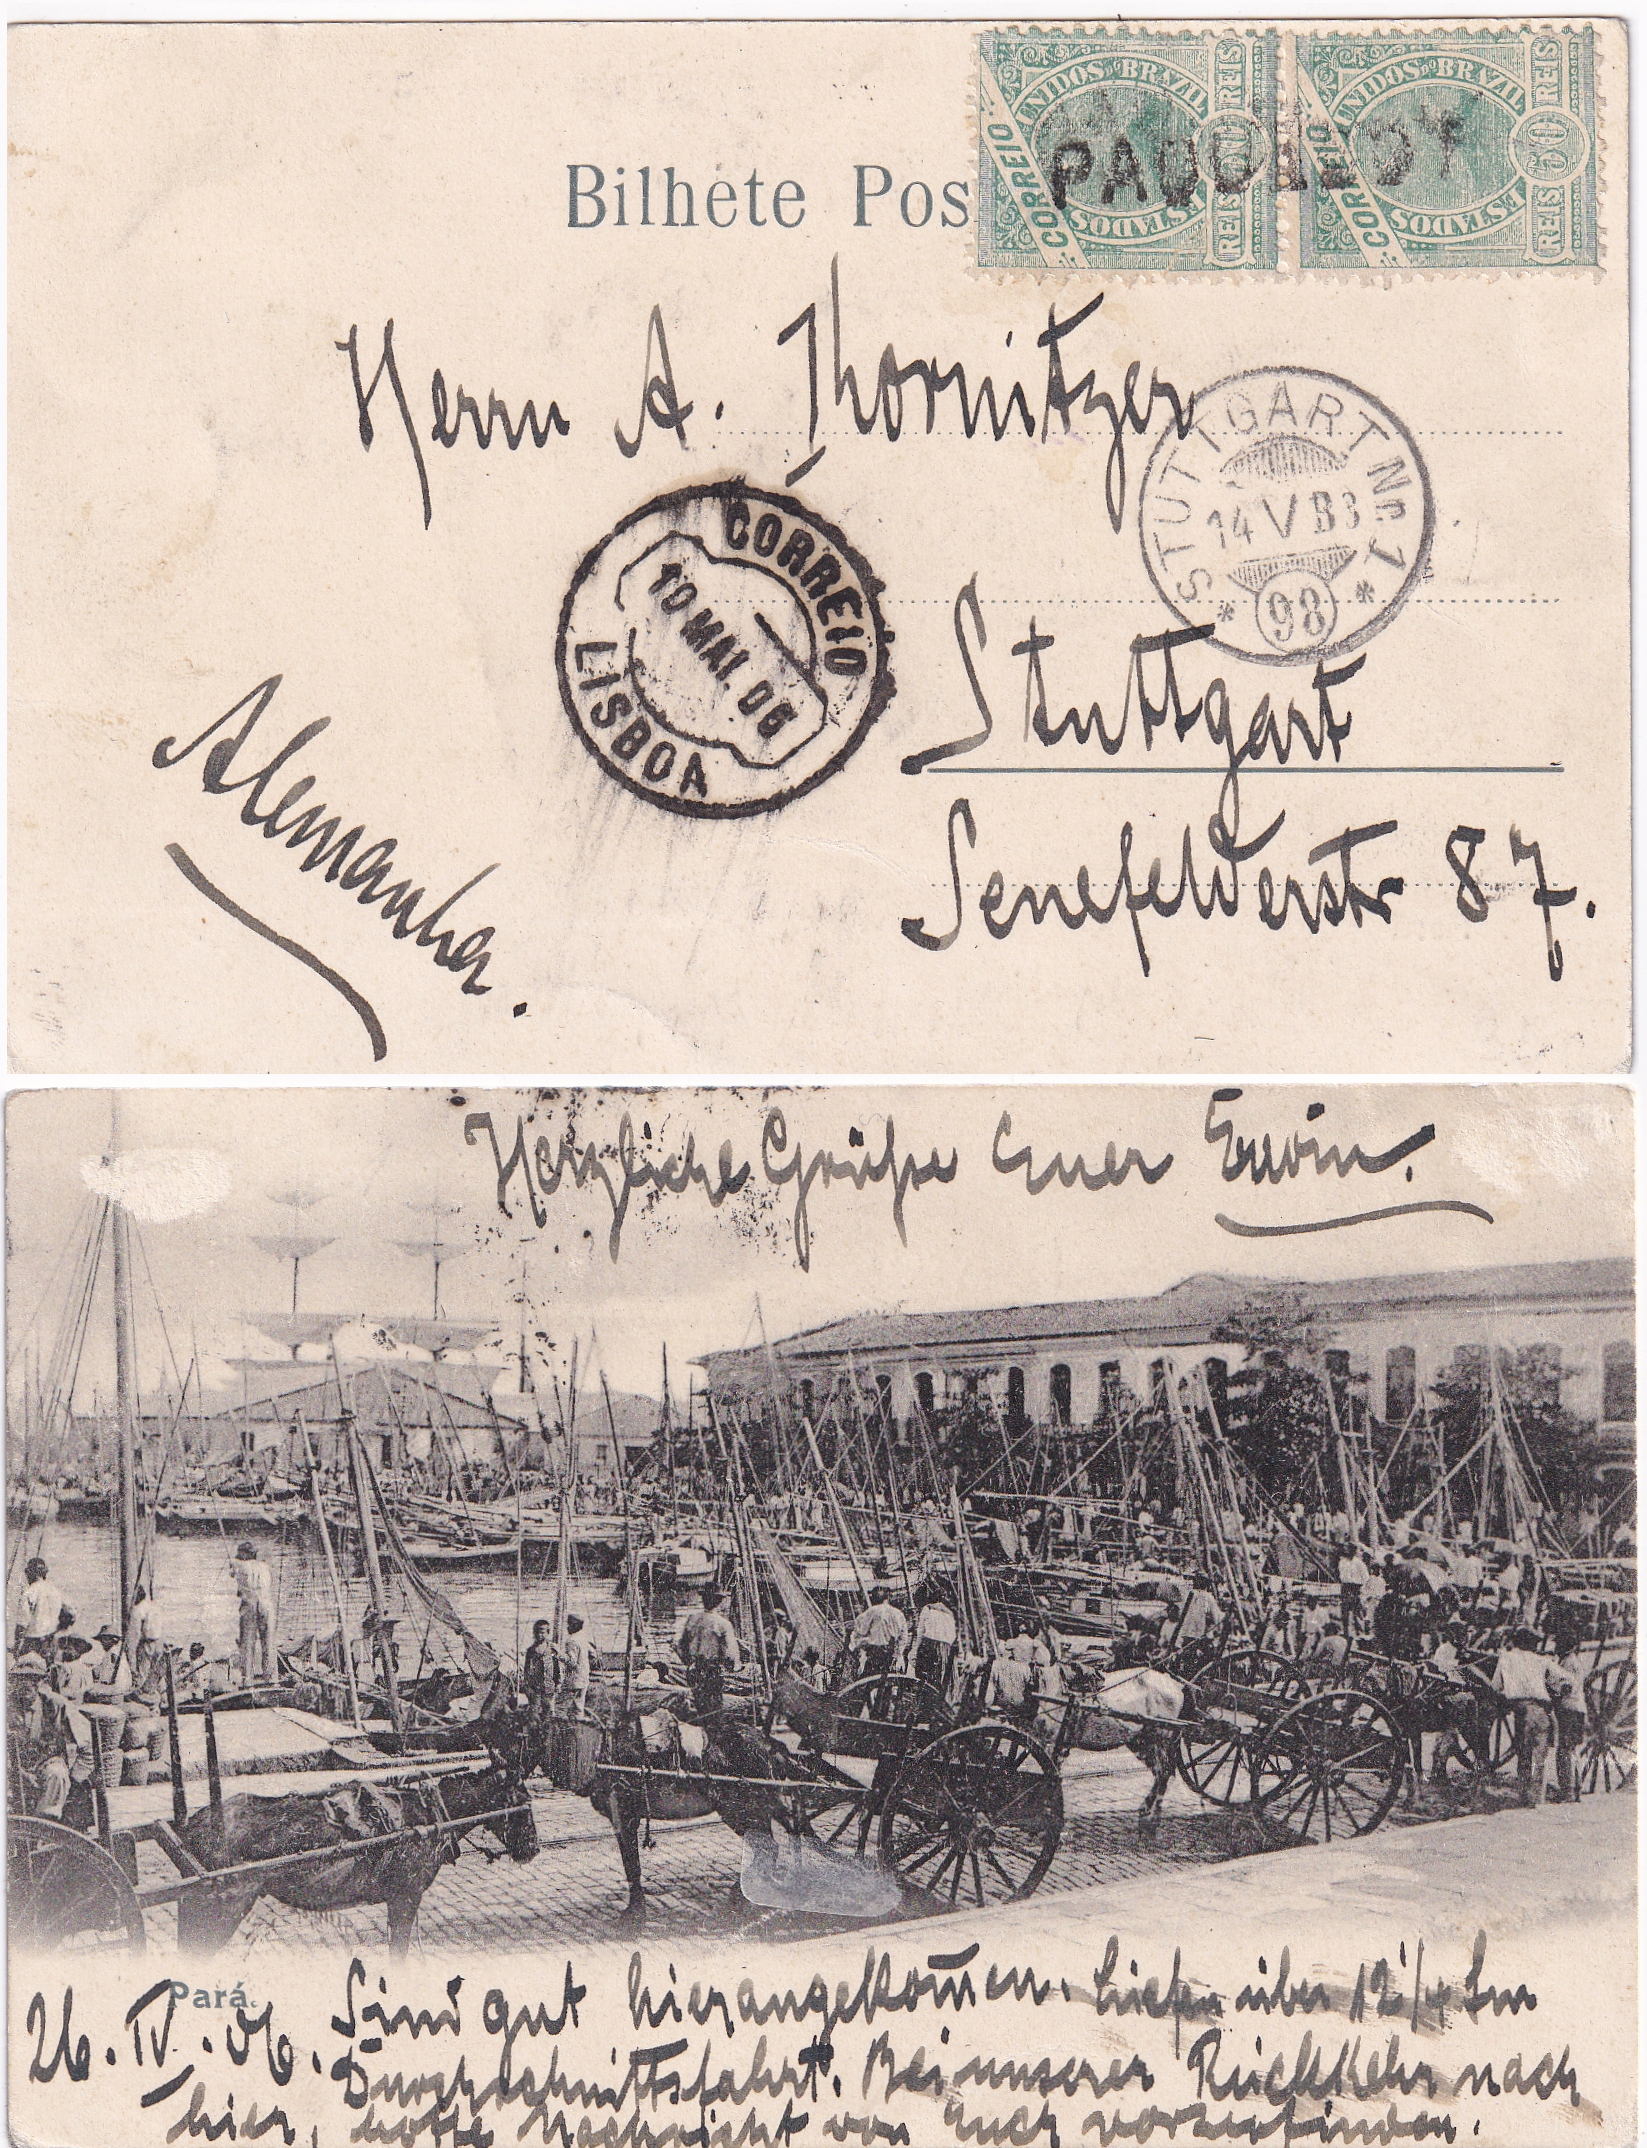 Bilhete Pos
CORREIO
ESTADOS UNIDOS DO BRAZIL
50 REIS REIS
CORREIO
ESTADOS UNIDOS DO BRAZIL
50 REIS REIS
PAQUEBOT
Herrn A. Thornitzer
STUTTGART No. 1
14 V B3
* 98 *
CORREIO
10 MAI. 06
LISBOA
Stuttgart
Senefelderstr 87.
Alemanha.
Herzliche Grüße Euer Erwin.
Pará.
26. IV. 06. Sind gut hier angekom̄en. Liefen über 12 1/4 Sm
Durchschnittsfahrt. Bei unserer Rückkehr nach
hier, hoffe Nachricht von Euch vorzufinden.